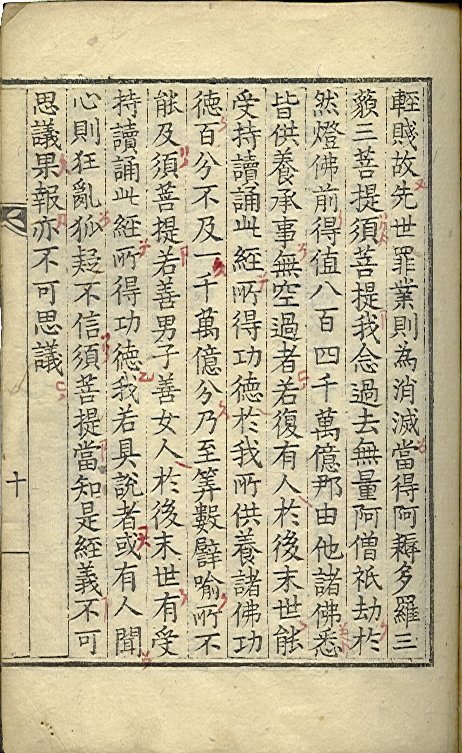 輕賤故先世罪業則為消滅當得阿耨多羅三
藐三菩提須菩提我念過去無量阿僧祇劫於
然燈佛前得值八百四千萬億那由他諸佛悉
皆供養承事無空過者若復有人於後末世能
受持讀誦此經所得功德於我所供養諸佛功
德百分不及一千萬億分乃至筭數譬喻所不
能及須菩提若善男子善女人於後末世有受
持讀誦此經所得功德我若具說者或有人聞
心則狂亂狐疑不信須菩提當知是經義不可
思議果報亦不可思議
十